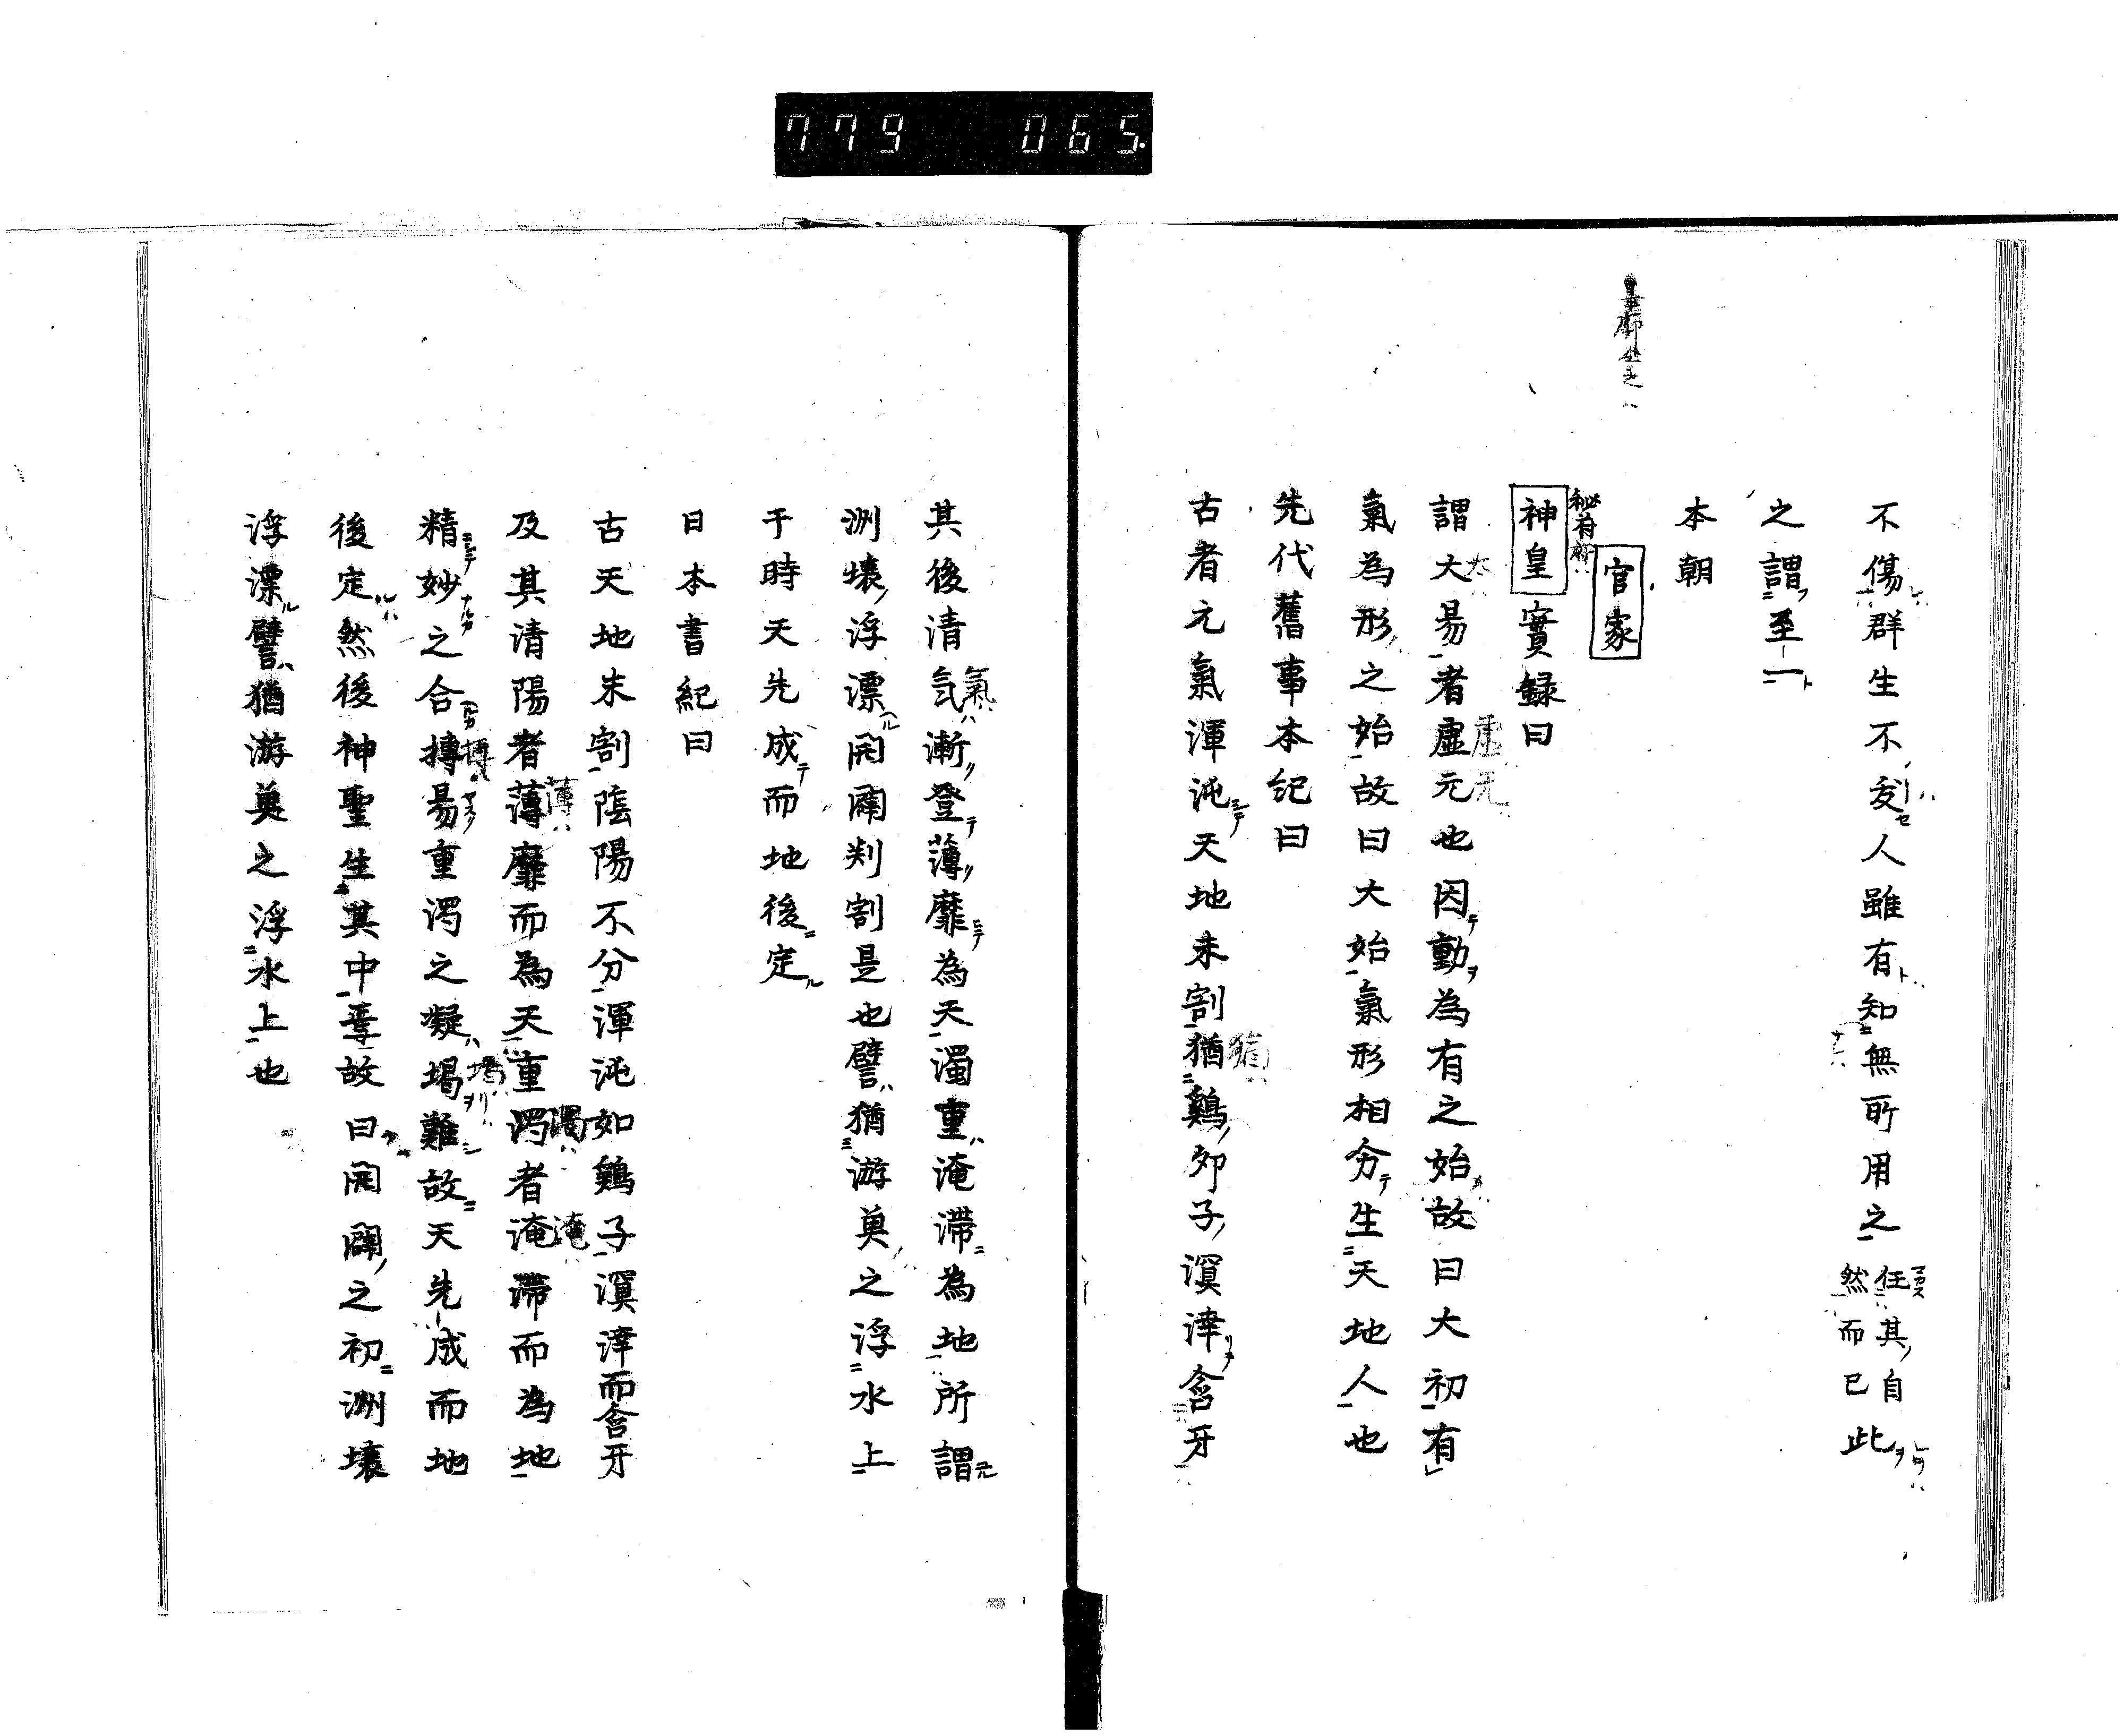 779 065.
不傷群生不夭人雖有知無所用之任其自然而已此
之謂至一
本朝
官家
秘府
神皇實録曰
謂大易者虚元也因動為有之始故曰大初有
氣為形之始故曰大始氣形相分生天地人也
先代舊事本紀曰
古者元氣渾沌天地未割猶鷄卵子溟涬含牙
其後清気漸登薄靡為天濁重淹滞為地所謂
洲壤浮漂開闢判割是也譬猶游魚之浮水上
于時天先成而地後定
日本書紀曰
古天地未割陰陽不分渾沌如鷄子溟涬而含牙
及其清陽者薄靡而為天重濁者淹滞而為地
精妙之合摶易重濁之凝堨難故天先成而地
後定然後神聖生其中焉故曰開闢之初洲壤
浮漂譬猶游魚之浮水上也